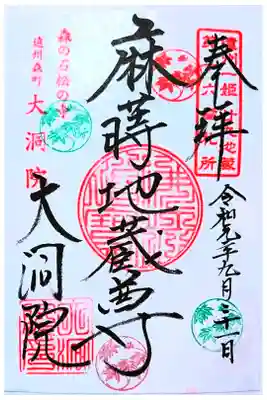 奉拝
麻蒔地蔵尊
大洞院
令和元年九月二十一日
森の石松の寺
遠州森町
大洞院